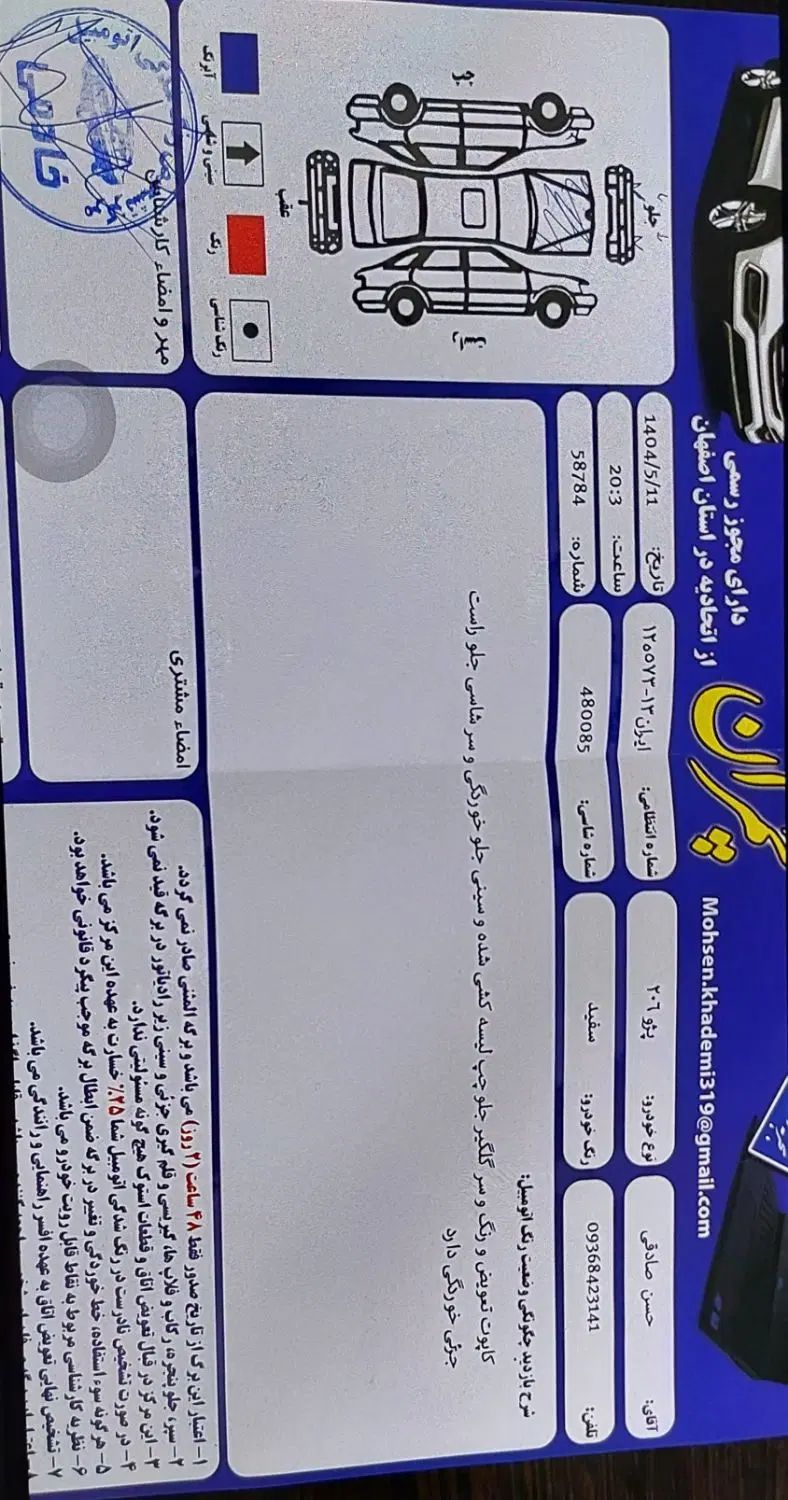 دارای مجوز رسمی
از اتحادیه در استان اصفهان
Mohsen.khademi319@gmail.com
آقای: حسن صادقی
نوع خودرو: پژو ۲۰۶
شماره انتظامی: ایران ۱۳-
تاریخ: 1404/5/11
ساعت: 20:3
تلفن: 09368423141
رنگ خودرو: سفید
شماره شاسی: 480085
شماره: 58784
شرح بازدید چگونگی وضعیت رنگ اتومبیل:
کاپوت تعویض و رنگ و سر گلگیر جلو چپ لیسه کشی شده و سینی جلو خوردگی و سر شاسی جلو راست
جزئی خوردگی دارد
جلو
عقب
رنگ شناسی
رنگ
آبرنگ
مهر و امضاء کارشناس
خادمی
امضاء مشتری
۱- اعتبار این برگ از تاریخ صدور فقط ۴۸ ساعت (۲ روز) می باشد و برگه المثنی صادر نمی گردد.
۲- سپر، جلو پنجره، رکاب و قلاب ها، گیربسی و قلم گیری جزئی و سینی زیر رادیاتور در برگه قید نمی شود.
۳- این مرکز در قبال تعویض اتاق و قطعات استوک هیچ گونه مسئولیتی ندارد.
۴- در صورت تشخیص نادرست در رنگ شدگی اتومبیل شما ۲۵٪ خسارت به عهده این مرکز می باشد.
۵- هر گونه سوء استفاده، خط خوردگی و تغییر در برگه ضمن ابطال برگه موجب پیگرد قانونی خواهد بود.
۶- نظریه کارشناسی مربوط به نقاط قابل رویت خودرو می باشد.
۷- تشخیص نهایی تعویض اتاق به عهده افسر راهنمایی و رانندگی می باشد.